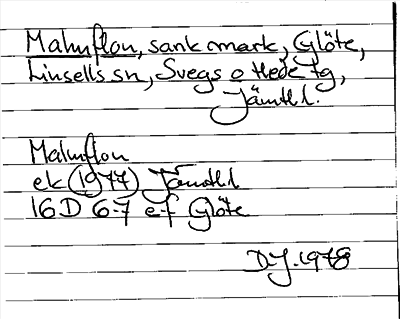 Malmflon, sank mark, Glöte,
Linsells sn, Svegs o Hede tg,
Jämtl l.
Malmflon
ek (1977) Jämtl l
16D 6-7 e-f Glöte
D.J. 1978